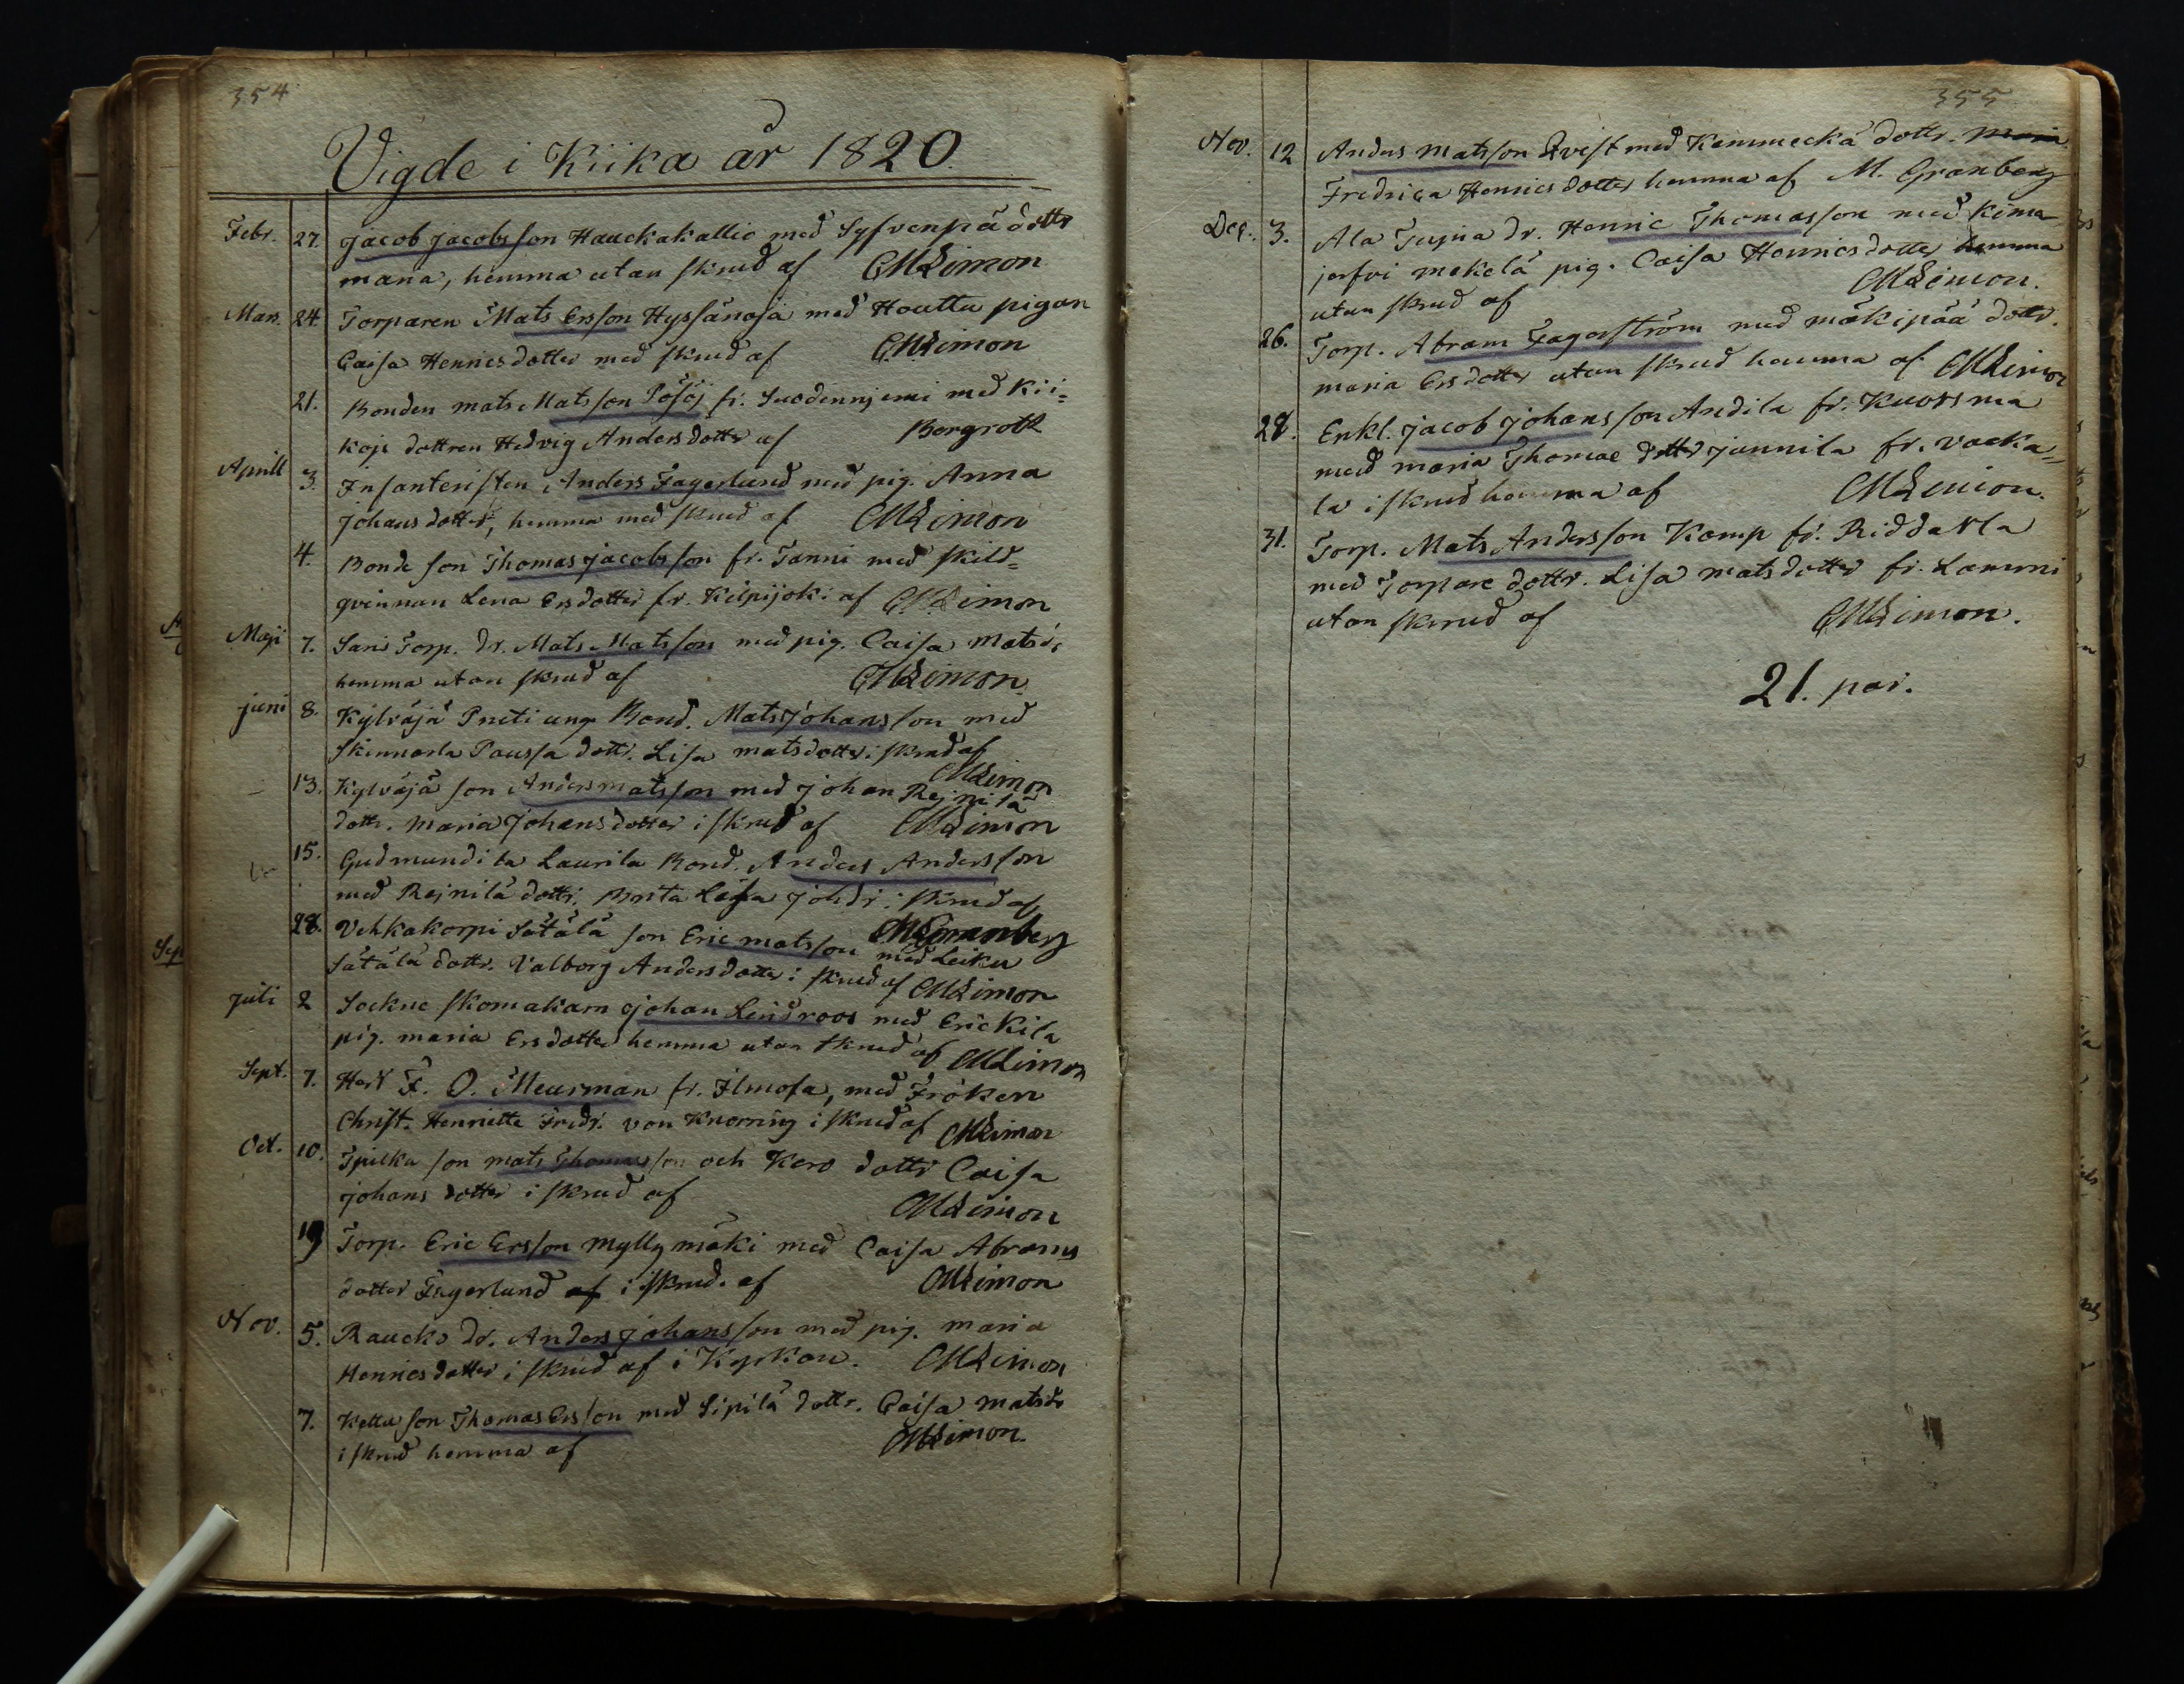 354
Vigde i Kiika år 1820.
Febr. 27. Jacob Jacobsson Hauckakallio med Syfvenpä dottr
maria, hemma utan skrud af CMLimon
Mars. 24. Torparen Mats Ersson Hyssänoja med Houttu pigan
Caisa Henricsdotter med skrud af CMLimon
21. Bonden Mats Matsson Pösöj fr. Suodenniemi med Kii=
kojs dottren Hedvig Andersdotter af Borgroth
Aprill 3. Infanteristen Anders Fagerlund med pig. Anna
Johansdotter, hemma med skrud af CMLimon
4. Bonde son Thomas Jacobsson fr. Tanni med skild=
qvinnan Lena Ersdotter fr. Kilpijoki af CMLimon
Maji 7. Sari Torp. dr. Mats Matsson med pig. Caisa Matsdr
hemma utan skrud af CMLimon
Juni 8. Kylväjä Prieti ung Bond. Mats Johansson med
Skinnarla Paussa dottr. Lisa matsdotter i skrud af
CMLimon
13. Kylväjä son Anders matsson med Johan Rejnilä
dottr. maria Johansdotter i skrud af CMLimon
15. Gudmundila Laurila Bond. Anders Andersson
med Rejnilä dottr. Brita Lisa Johdr i skrud af
MGranberg
28. Vehkakorpi Sätälä son Eric matsson med Leiku
Sätälä dottr. Valborg Andersdotter i skrud af CMLimon
Juli 2 Sockne skomakarn Johan Lindroos med Erickila
pig. maria Ersdotter hemma utan skrud af CMLimon
Sept. 7. Herr F. O. Meurman fr. Ilmola, med Fröken
Christ. Henrietta Fredr. von Knorring i skrud af CMLimon
Oct. 10. Tpilka son mats Thomasson och Kero dottr Caisa
Johans dotter i skrud af CMLimon
19 Torp. Eric Ersson Myllymäki med Caisa Abrams
dotter Fagerlund af i skrud. af CMLimon
Nov. 5. Raucko dr. Anders Johansson med pig. maria
Henricsdotter i skrud af i Kyrkan. CMLimon
7. Kettu son Thomas Ersson med Sipilä dottr. Caisa matsdr
i skrud hemma af CMLimon.
355
Nov. 12 Anders Matsson Qvist med Kemmeckä dottr. Maria
Fredrica Henricsdotter hemma af M. Granberg
Dec. 3. Ala Tupia dr. Henric Thomasson med Kima
jerfvi mäkelä pig. Caisa Henricsdotter hemma
utan skrud af CMLimon.
26. Torp. Abram Fagerström med mäkipää dottr.
maria Ersdotter utan skrud hemma af CMLimon
28. Enkl. Jacob Johansson Andila fr. Kuorsma
med maria Thomae dotter Junnila fr. Vocka=
la i skrud hemma af CMLimon.
31. Torp. Mats Andersson Kamp fr. Riddarla
med Torpare dottr. Lisa matsdotter fr. Lammi
utan skrud af CMLimon.
21. par.